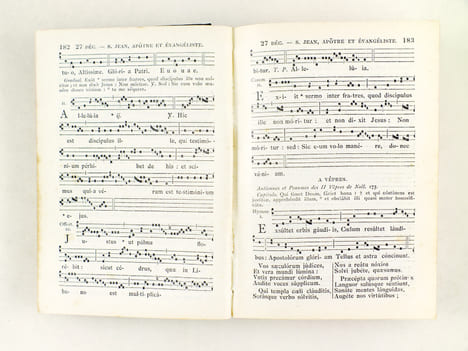 182 27 DÉC. — S. JEAN, APÔTRE ET ÉVANGÉLISTE.
tu-o, Altíssime. Glóri-a Patri. E u o u a e.
Gradual Exiit * sermo inter fratres, quod discipulus ille non
et non dixit Jesus : Non
A
L-le-lú-ia * ij. ℣. Hic
est discípulus il- le, qui testimó-
ni-um pérhi- bet de his : et sci-
mus qui-a ve- rum est testimóni-um
* e-jus.
Offert.
J
Ustus * ut palma flo-
ré-bit : sicut cédrus, quæ in Lí-
ba-no est mul-ti-plicá-
27 DÉC. — S. JEAN, APÔTRE ET ÉVANGÉLISTE. 183
bi-tur. T. P. Al-le- lú- ia.
Comm.
E
X-i- it * sermo inter fra-tres, quod discípulus
ille non mó-ri-tur : et non di-xit Jesus : Non
mó-ri-tur : sed : Sic e-um vo-lo mané- re, donec
véni- am.
A VÊPRES.
Antiennes et Psaumes des II Vêpres de Noël. 175.
Capitule. Qui timet Deum, fáciet bona : † et qui cóntinens est
justítiæ, apprehéndet illam, * et obviábit illi quasi mater honorificáta.
Hymne
E
Xsúltet orbis gáudi-is, Cælum resúltet láudi-
bus : Apostolórum glóri-am Tellus et astra cóncinunt.
Vos sæculórum júdices,
Et vera mundi lúmina :
Votis precámur córdium,
Audíte voces súpplicum.
Qui templa cæli cláuditis,
Serásque verbo sólvitis,
Nos a reátu nóxios
Solvi jubéte, quǽsumus.
Præcépta quorum prótinus
Languor salúsque séntiunt,
Sanáte mentes lánguidas,
Augéte nos virtútibus ;